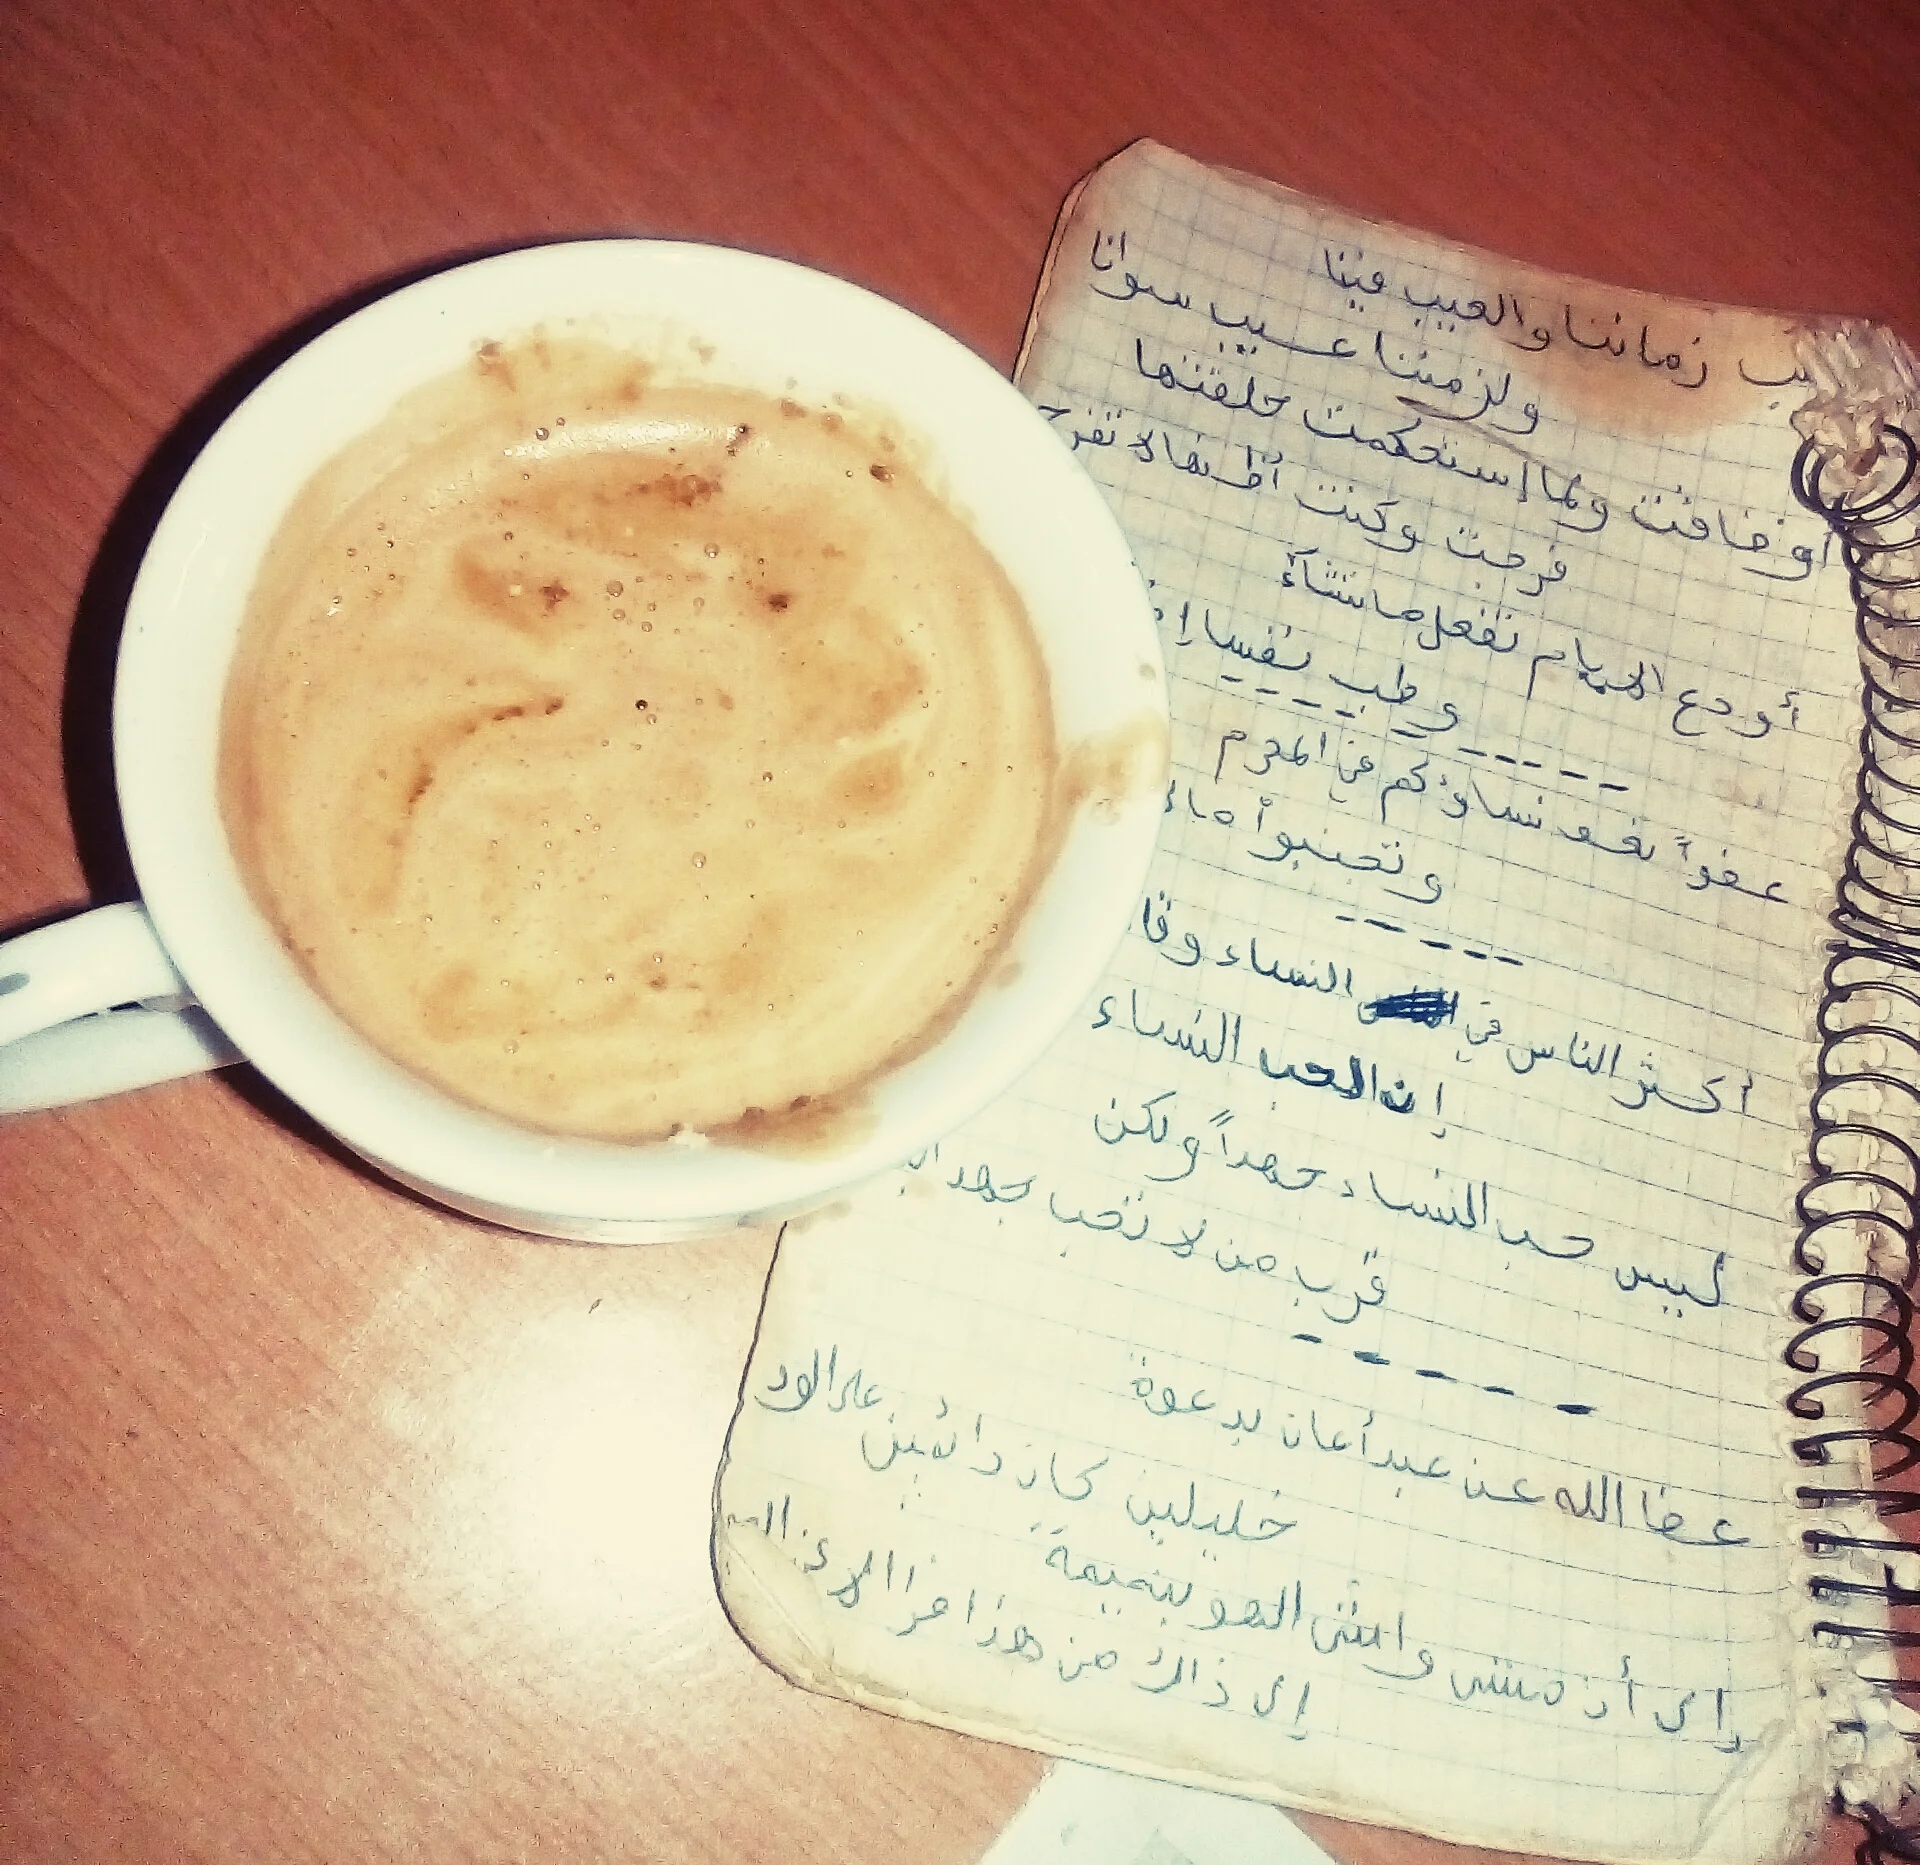 زماننا والعيب فينا
ولزمننا عسيب سوانا
أو ضاقت ولما إستحكمت حلقتها
فرجت وكنت أظنها لا تفرج
أو دع الايام تفعل ما تشآء
وطب نفسا
عفواً تعف نساؤكم في المحرم
وتجنبوا ما
أكثر الناس في النساء وقا
إن الحب النساء
ليس حب النساء جهداً ولكن
قرب من لا تحب جهد
عفا الله عن عبد أعان بدعوة
خليلين كان دائبين على الود
إلى أن مشى واشي الهو بنميمة
إلى ذاك من هذا